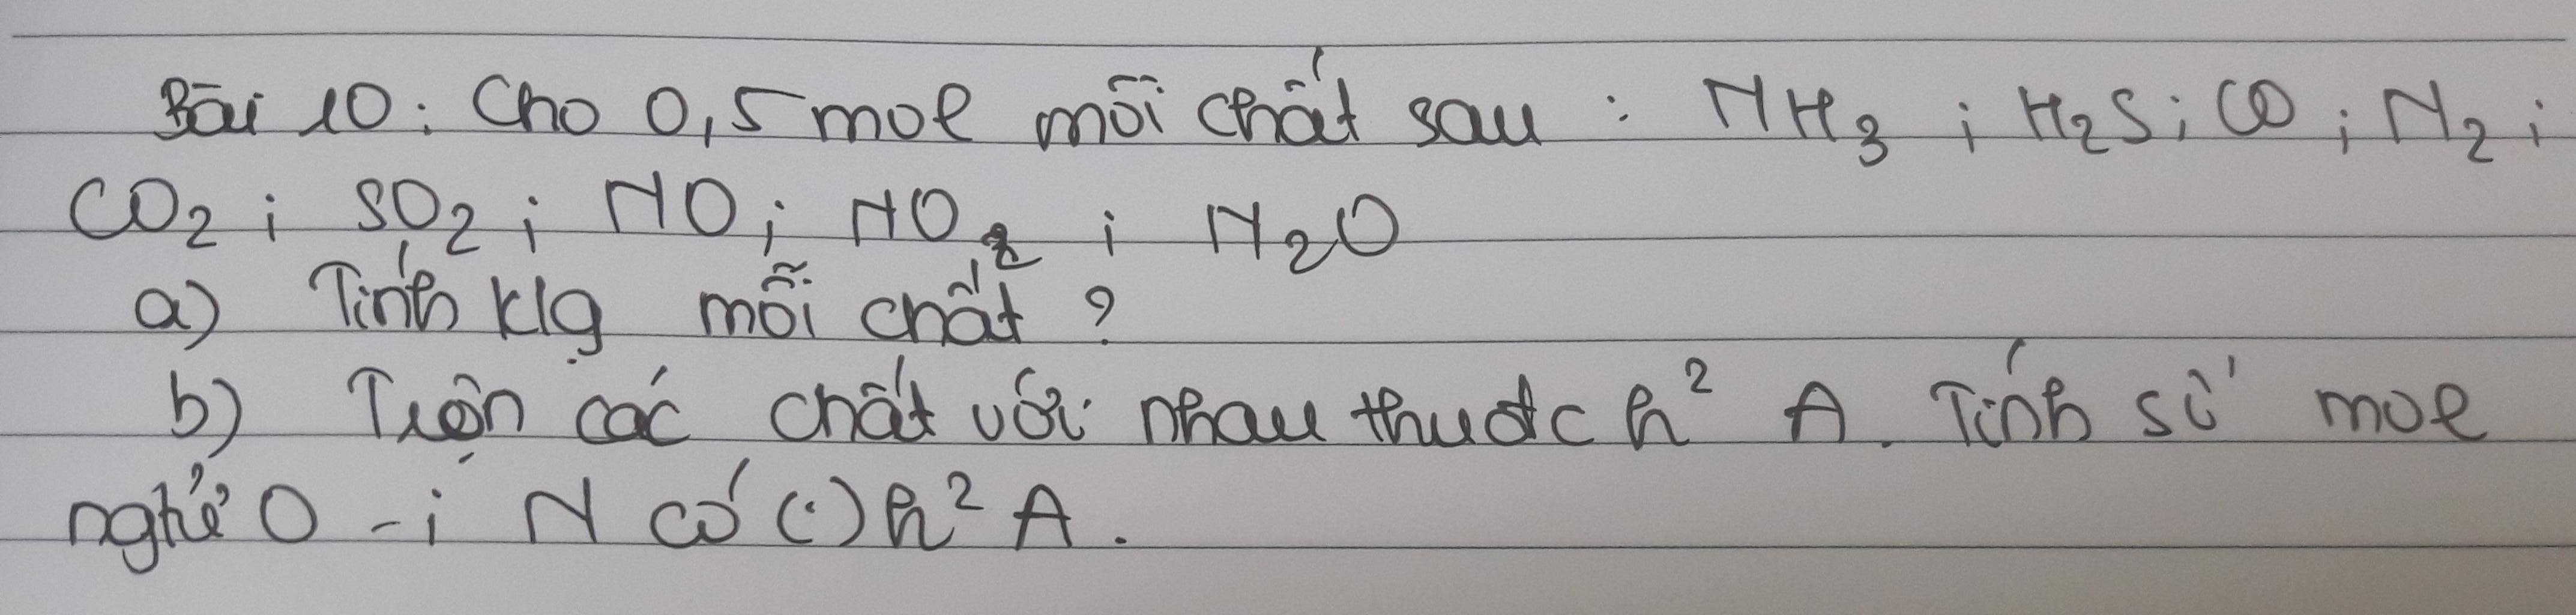 Bài 10: Cho 0,5 mol mỗi chất sau : NH3 ; H2S ; CO ; N2 ;
CO2 ; SO2 ; NO ; NO2 ; N2O
a) Tính klg mỗi chất ?
b) Trộn các chất với nhau thuđc h² A. Tính số mol
ngtử O - ; N có (.) h² A.